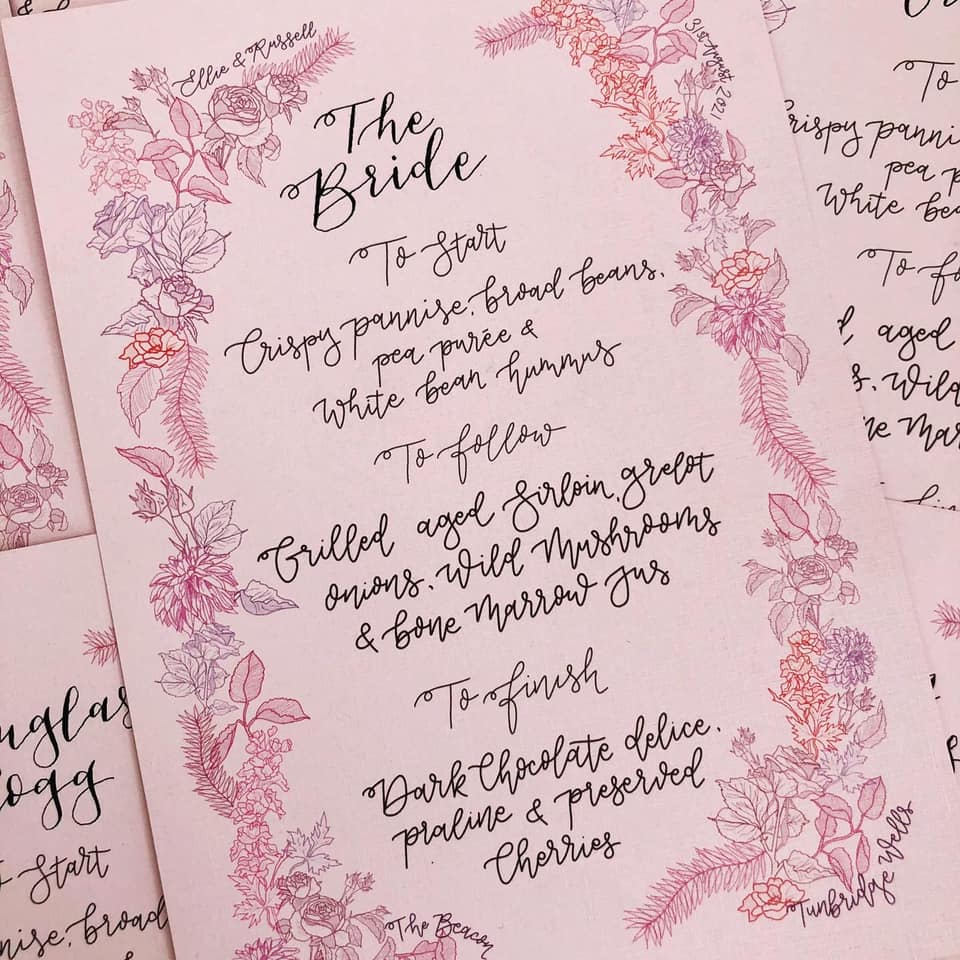 Ellie & Russell
31st August 2021
The
Bride
To Start
Crispy pannise, broad beans,
pea purée &
White bean hummus
To follow
Grilled aged Sirloin, grelot
onions, Wild Mushrooms
& bone Marrow Jus
To finish
Dark Chocolate delice,
praline & preserved
Cherries
The Beacon
Tunbridge Wells
To
rispy panni
pea p
White bea
To fo
aged
Wild
ne Mar
uglas
ogg
Start
nise, broad